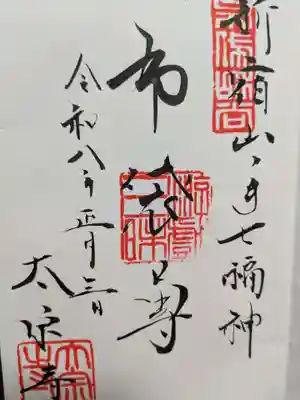 新宿山ノ手七福神
布袋尊
令和八年正月三日
太宗寺